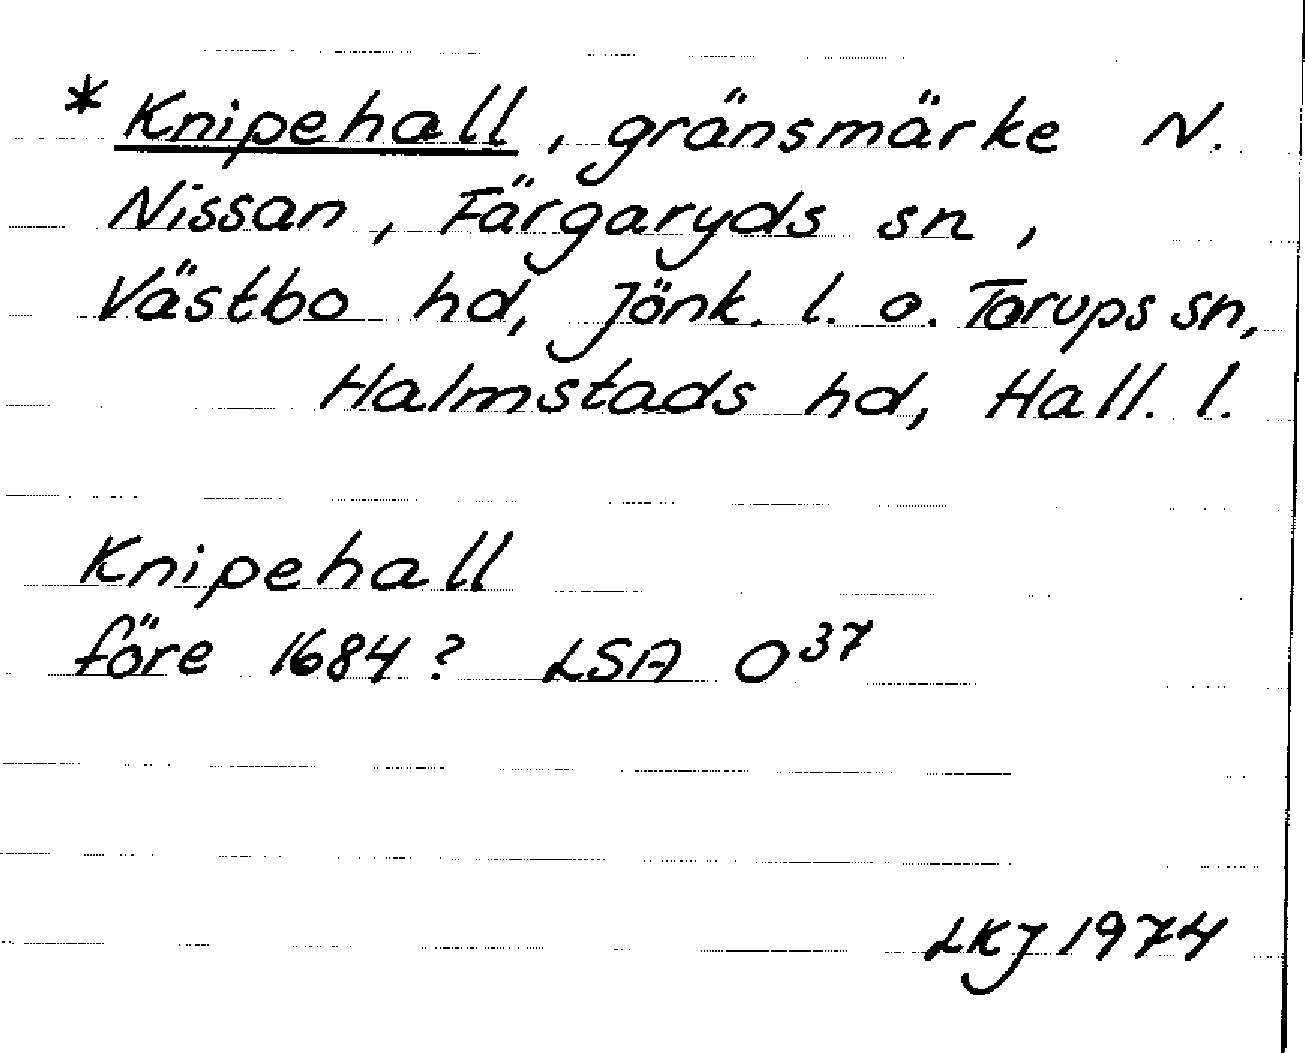 * Knipehall, gränsmärke N.
Nissan, Färgaryds sn,
Västbo hd, Jönk. l. o. Torups sn,
Halmstads hd, Hall. l.
Knipehall
före 1684? LSA O³⁷
LKJ 1974